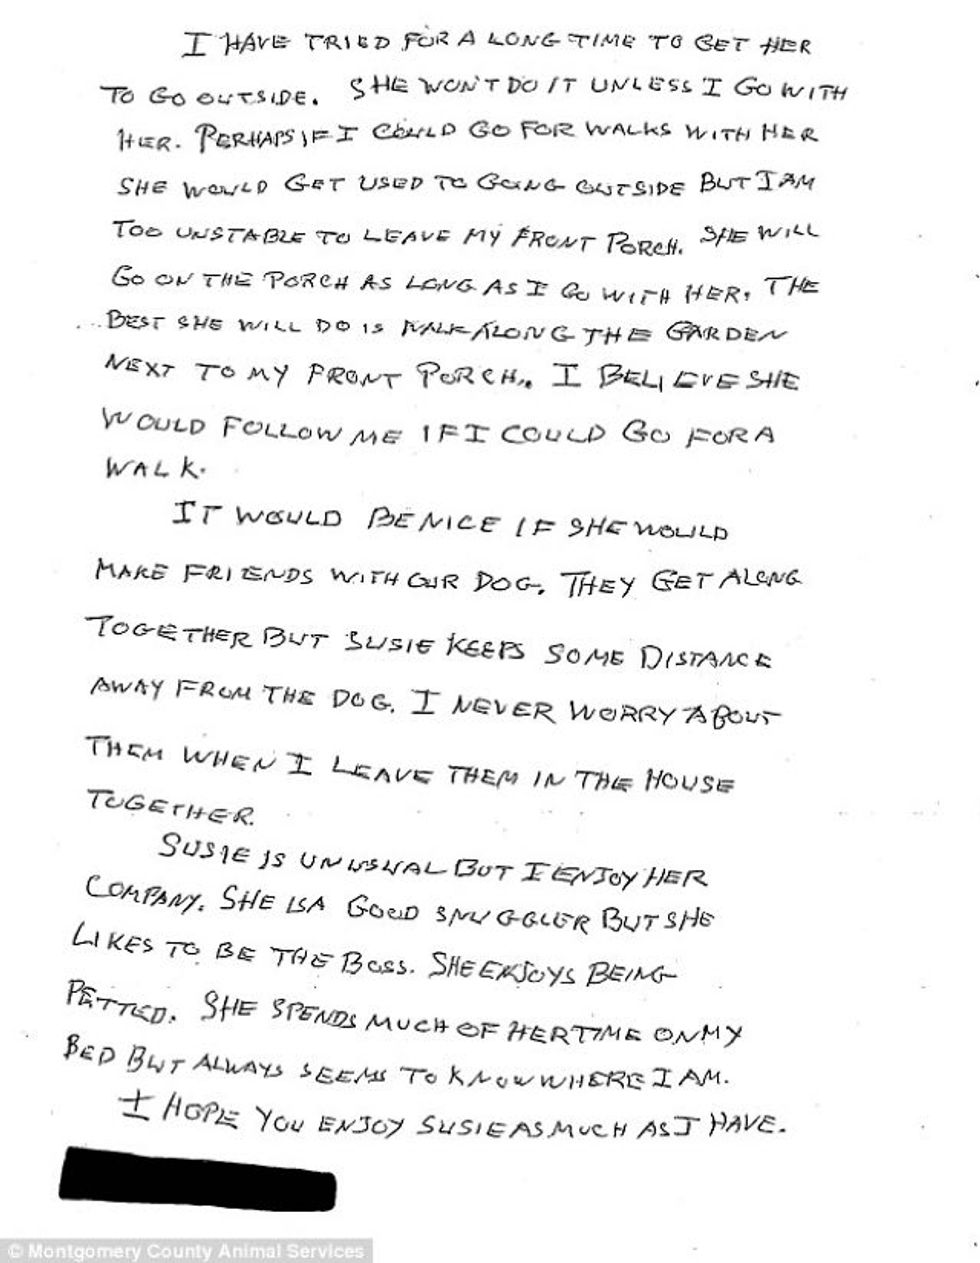 I HAVE TRIED FOR A LONG TIME TO GET HER
TO GO OUTSIDE. SHE WON'T DO IT UNLESS I GO WITH
HER. PERHAPS IF I COULD GO FOR WALKS WITH HER
SHE WOULD GET USED TO GOING OUTSIDE BUT I AM
TOO UNSTABLE TO LEAVE MY FRONT PORCH. SHE WILL
GO ON THE PORCH AS LONG AS I GO WITH HER. THE
BEST SHE WILL DO IS WALK ALONG THE GARDEN
NEXT TO MY FRONT PORCH. I BELIEVE SHE
WOULD FOLLOW ME IF I COULD GO FOR A
WALK.
IT WOULD BE NICE IF SHE WOULD
MAKE FRIENDS WITH OUR DOG. THEY GET ALONG
TOGETHER BUT SUSIE KEEPS SOME DISTANCE
AWAY FROM THE DOG. I NEVER WORRY ABOUT
THEM WHEN I LEAVE THEM IN THE HOUSE
TOGETHER.
SUSIE IS UNUSUAL BUT I ENJOY HER
COMPANY. SHE IS A GOOD SNUGGLER BUT SHE
LIKES TO BE THE BOSS. SHE ENJOYS BEING
PETTED. SHE SPENDS MUCH OF HER TIME ON MY
BED BUT ALWAYS SEEMS TO KNOW WHERE I AM.
I HOPE YOU ENJOY SUSIE AS MUCH AS I HAVE.
© Montgomery County Animal Services